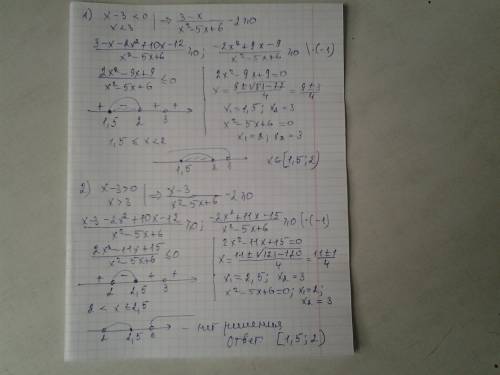 1) x-3<0 | ⇒ (3-x)/(x²-5x+6) -2≥0
x<3
(3-x-2x²+10x-12)/(x²-5x+6) ≥0; (-2x²+9x-9)/(x²-5x+6) ≥0 |·(-1)
(2x²-9x+9)/(x²-5x+6) ≤0
2x²-9x+9=0
x=(9±√(81-72))/4=(9±3)/4
x₁=1,5; x₂=3
x²-5x+6=0
x₁=2; x₂=3
+ - + +
1,5 2 3
1,5 ≤ x<2
1,5 2 3
x∈[1,5;2)
2) x-3>0 | ⇒ (x-3)/(x²-5x+6) -2≥0
x>3
(x-3-2x²+10x-12)/(x²-5x+6) ≥0; (-2x²+11x-15)/(x²-5x+6) ≥0 |·(-1)
(2x²-11x+15)/(x²-5x+6) ≤0
2x²-11x+15=0
x=(11±√(121-120))/4=(11±1)/4
x₁=2,5; x₂=3
x²-5x+6=0; x₁=2;
x₂=3
+ - + +
2 2,5 3
2<x≤2,5
2 2,5
- нет решения
Ответ [1,5;2)